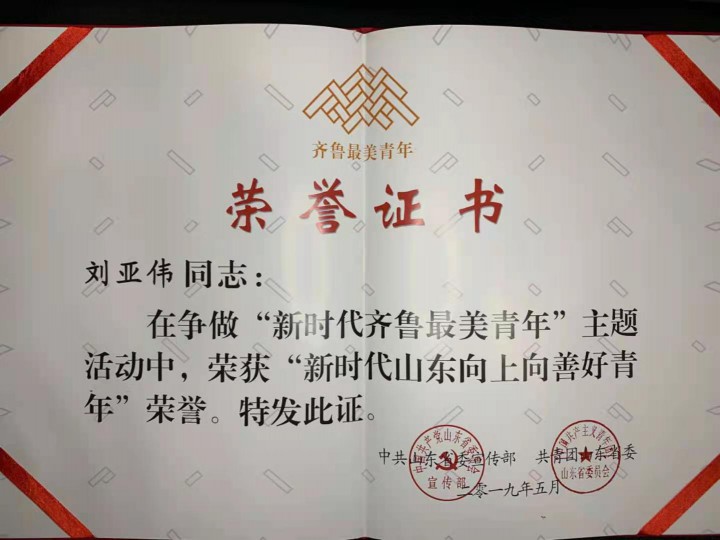 齐鲁最美青年
荣誉证书
刘亚伟同志：
在争做“新时代齐鲁最美青年”主题
活动中，荣获“新时代山东向上向善好青
年”荣誉。特发此证。
中共山东省委宣传部 共青团山东省委
二零一九年五月
中国共产党山东省委员会
宣传部
中国共产主义青年团
山东省委员会